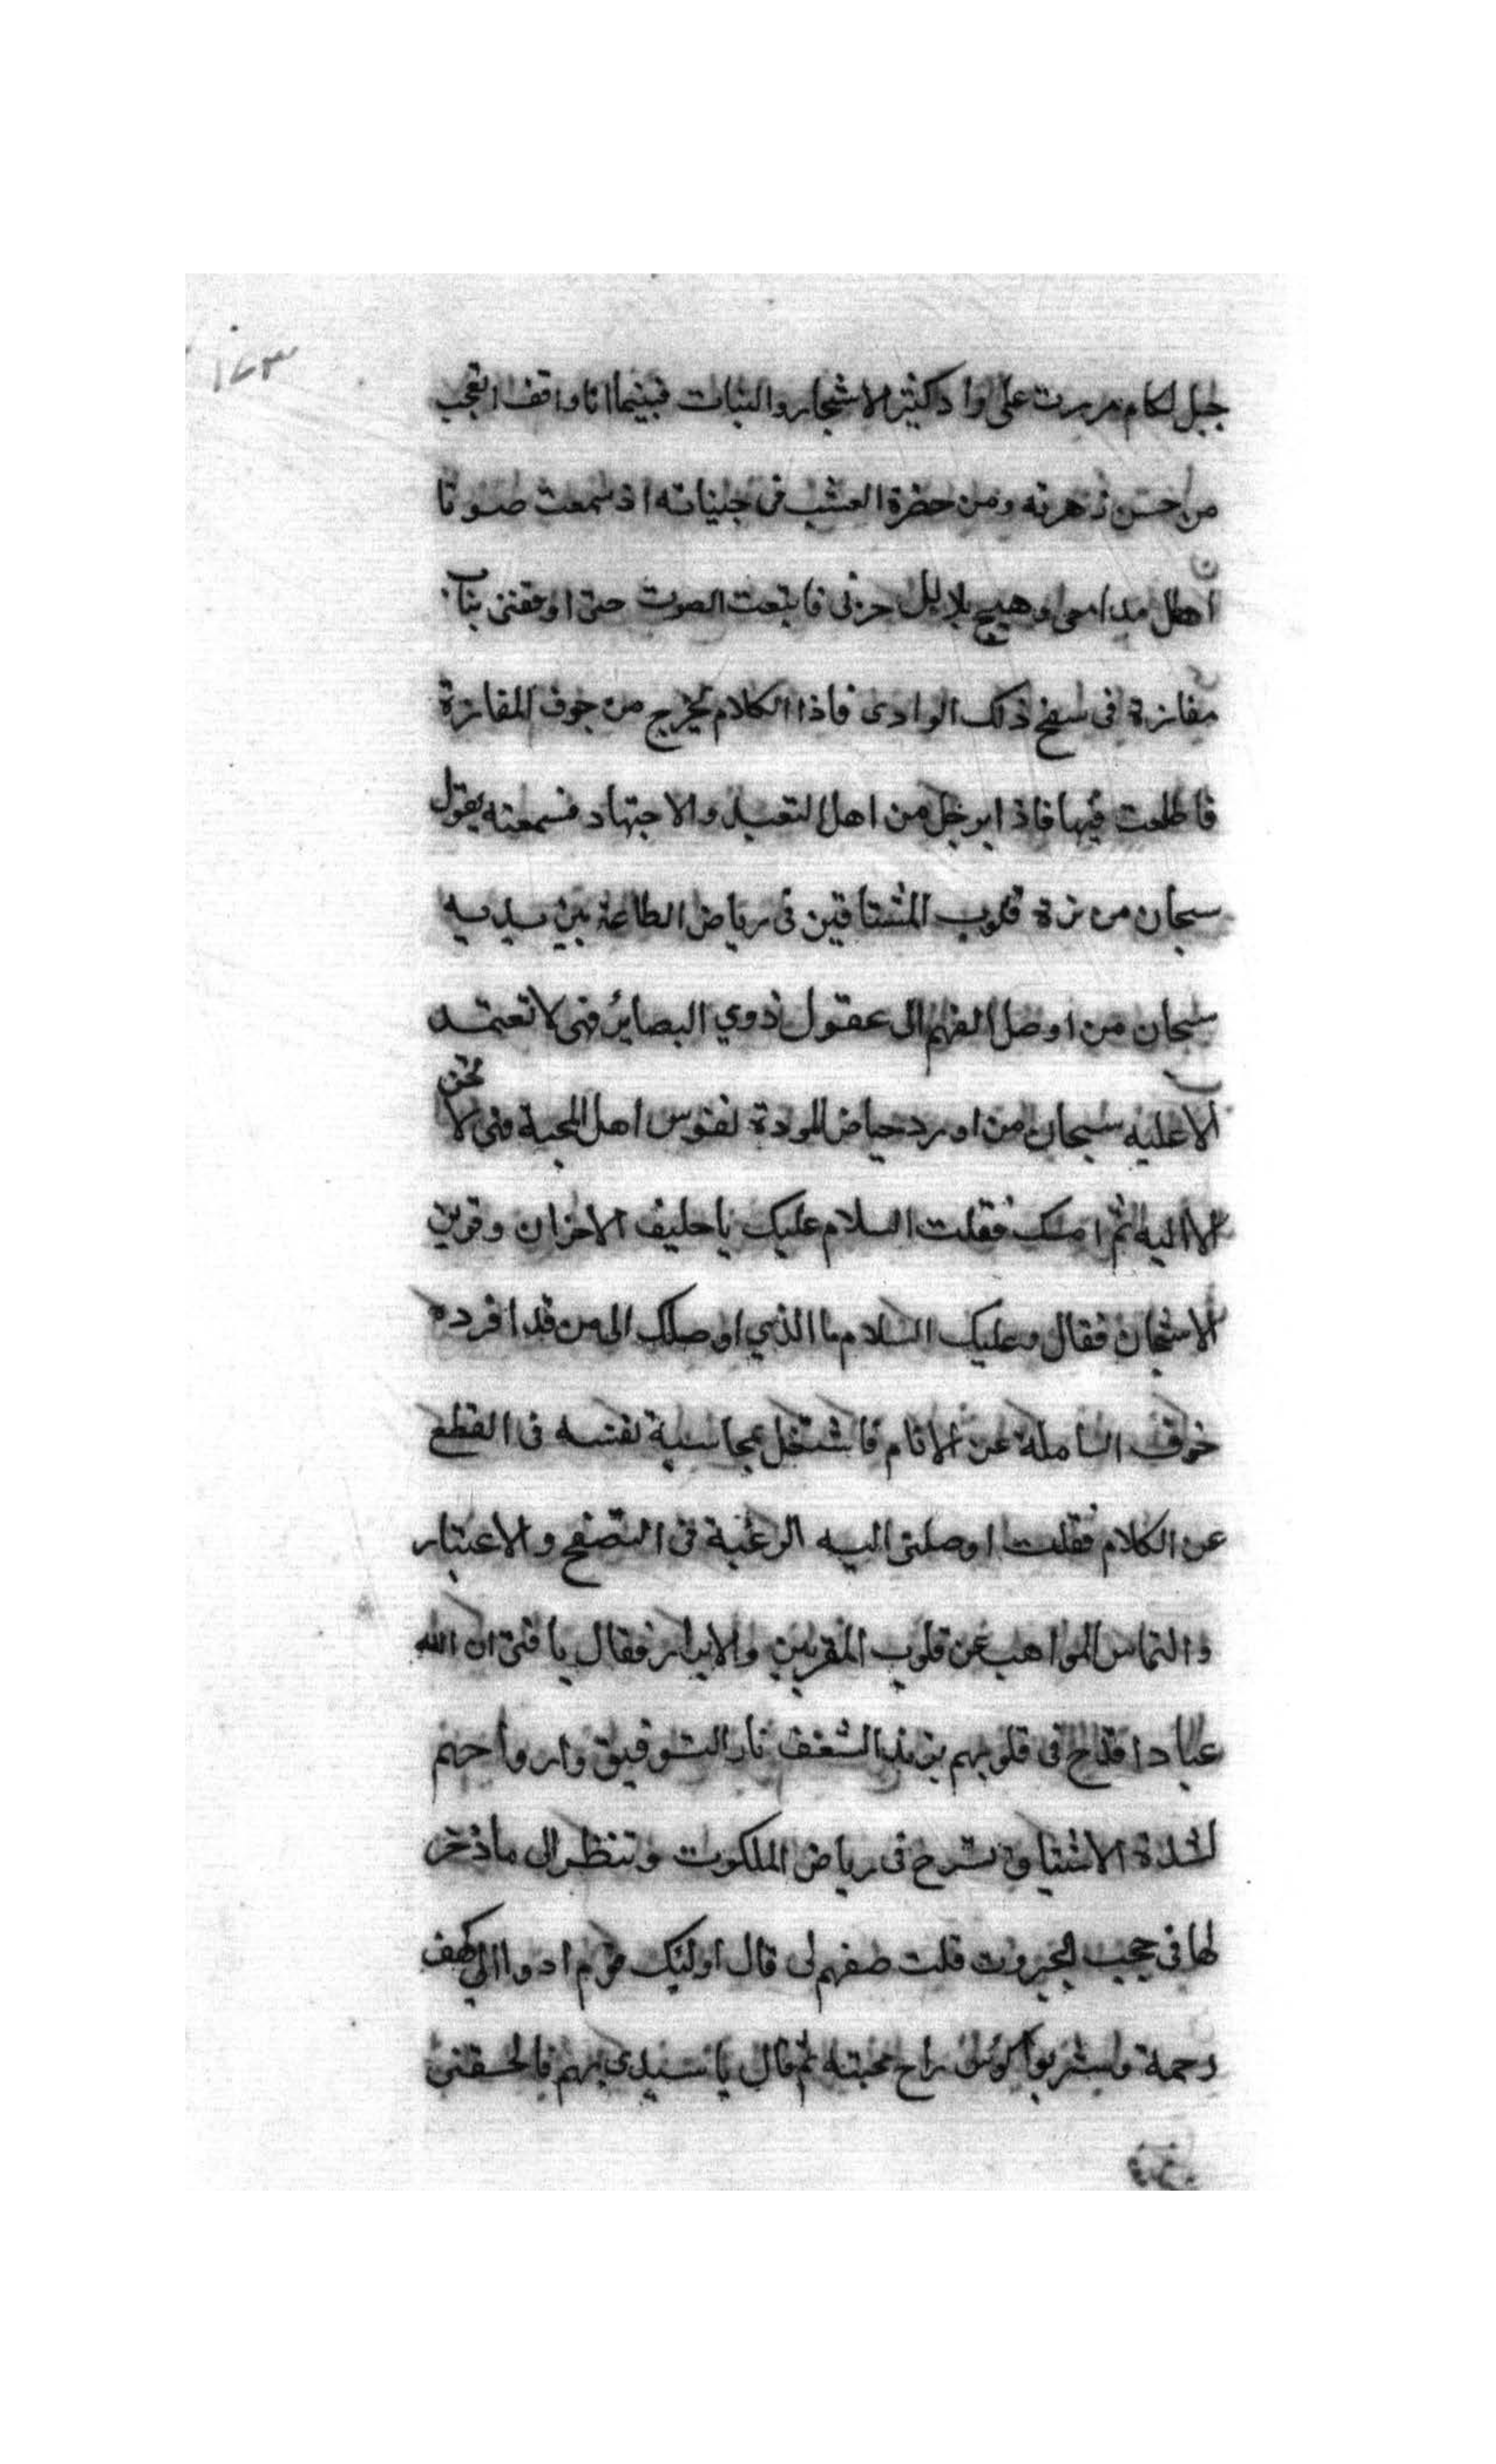 ١٧٣
جبل لكام مررت على واد كثير الاشجار والنبات فبينما انا واقف اتعجب
من حسن زهرته ومن خضرة العشب في جنباته اذ سمعت صوتا
اهطل مدامعي وهيج بلابل حزني فاتبعت الصوت حتى اوقفني بباب
مفازة في سفح ذلك الوادي فاذا الكلام يخرج من جوف المفازة
فاطلعت فيها فاذا برجل من اهل التعبد والاجتهاد فسمعته يقول
سبحان من نزه قلوب المشتاقين في رياض الطاعة بين يديه
سبحان من اوصل الفهم الى عقول ذوي البصاير فهي لا تعتمد
الا عليه سبحان من اورد حياض المودة نفوس اهل المحبة فهي لا تحن
الا اليه ثم امسك فقلت السلام عليك يا حليف الاحزان وقرين
الاشجان فقال وعليك السلام ما الذي اوصلك الى من قد افرده
خوف المساملة عن الانام فاشتغل بمحاسبة نفسه في القطع
عن الكلام فقلت اوصلني اليه الرغبة في التصفح والاعتبار
والتماس المواهب عن قلوب المقربين والابرار فقال يا فتى ان الله
عبادا قدح في قلوبهم بزند الشغف نار التوفيق وارواحهم
لشدة الاشتياق تسرح في رياض الملكوت وتنظر الى ما ذخر
لها في حجب الجبروت قلت صفهم لي قال اوليك قوم ادوا الى كهف
رحمة وشربوا كوس راح محبته ثم قال يا سيدي بهم فالحقني